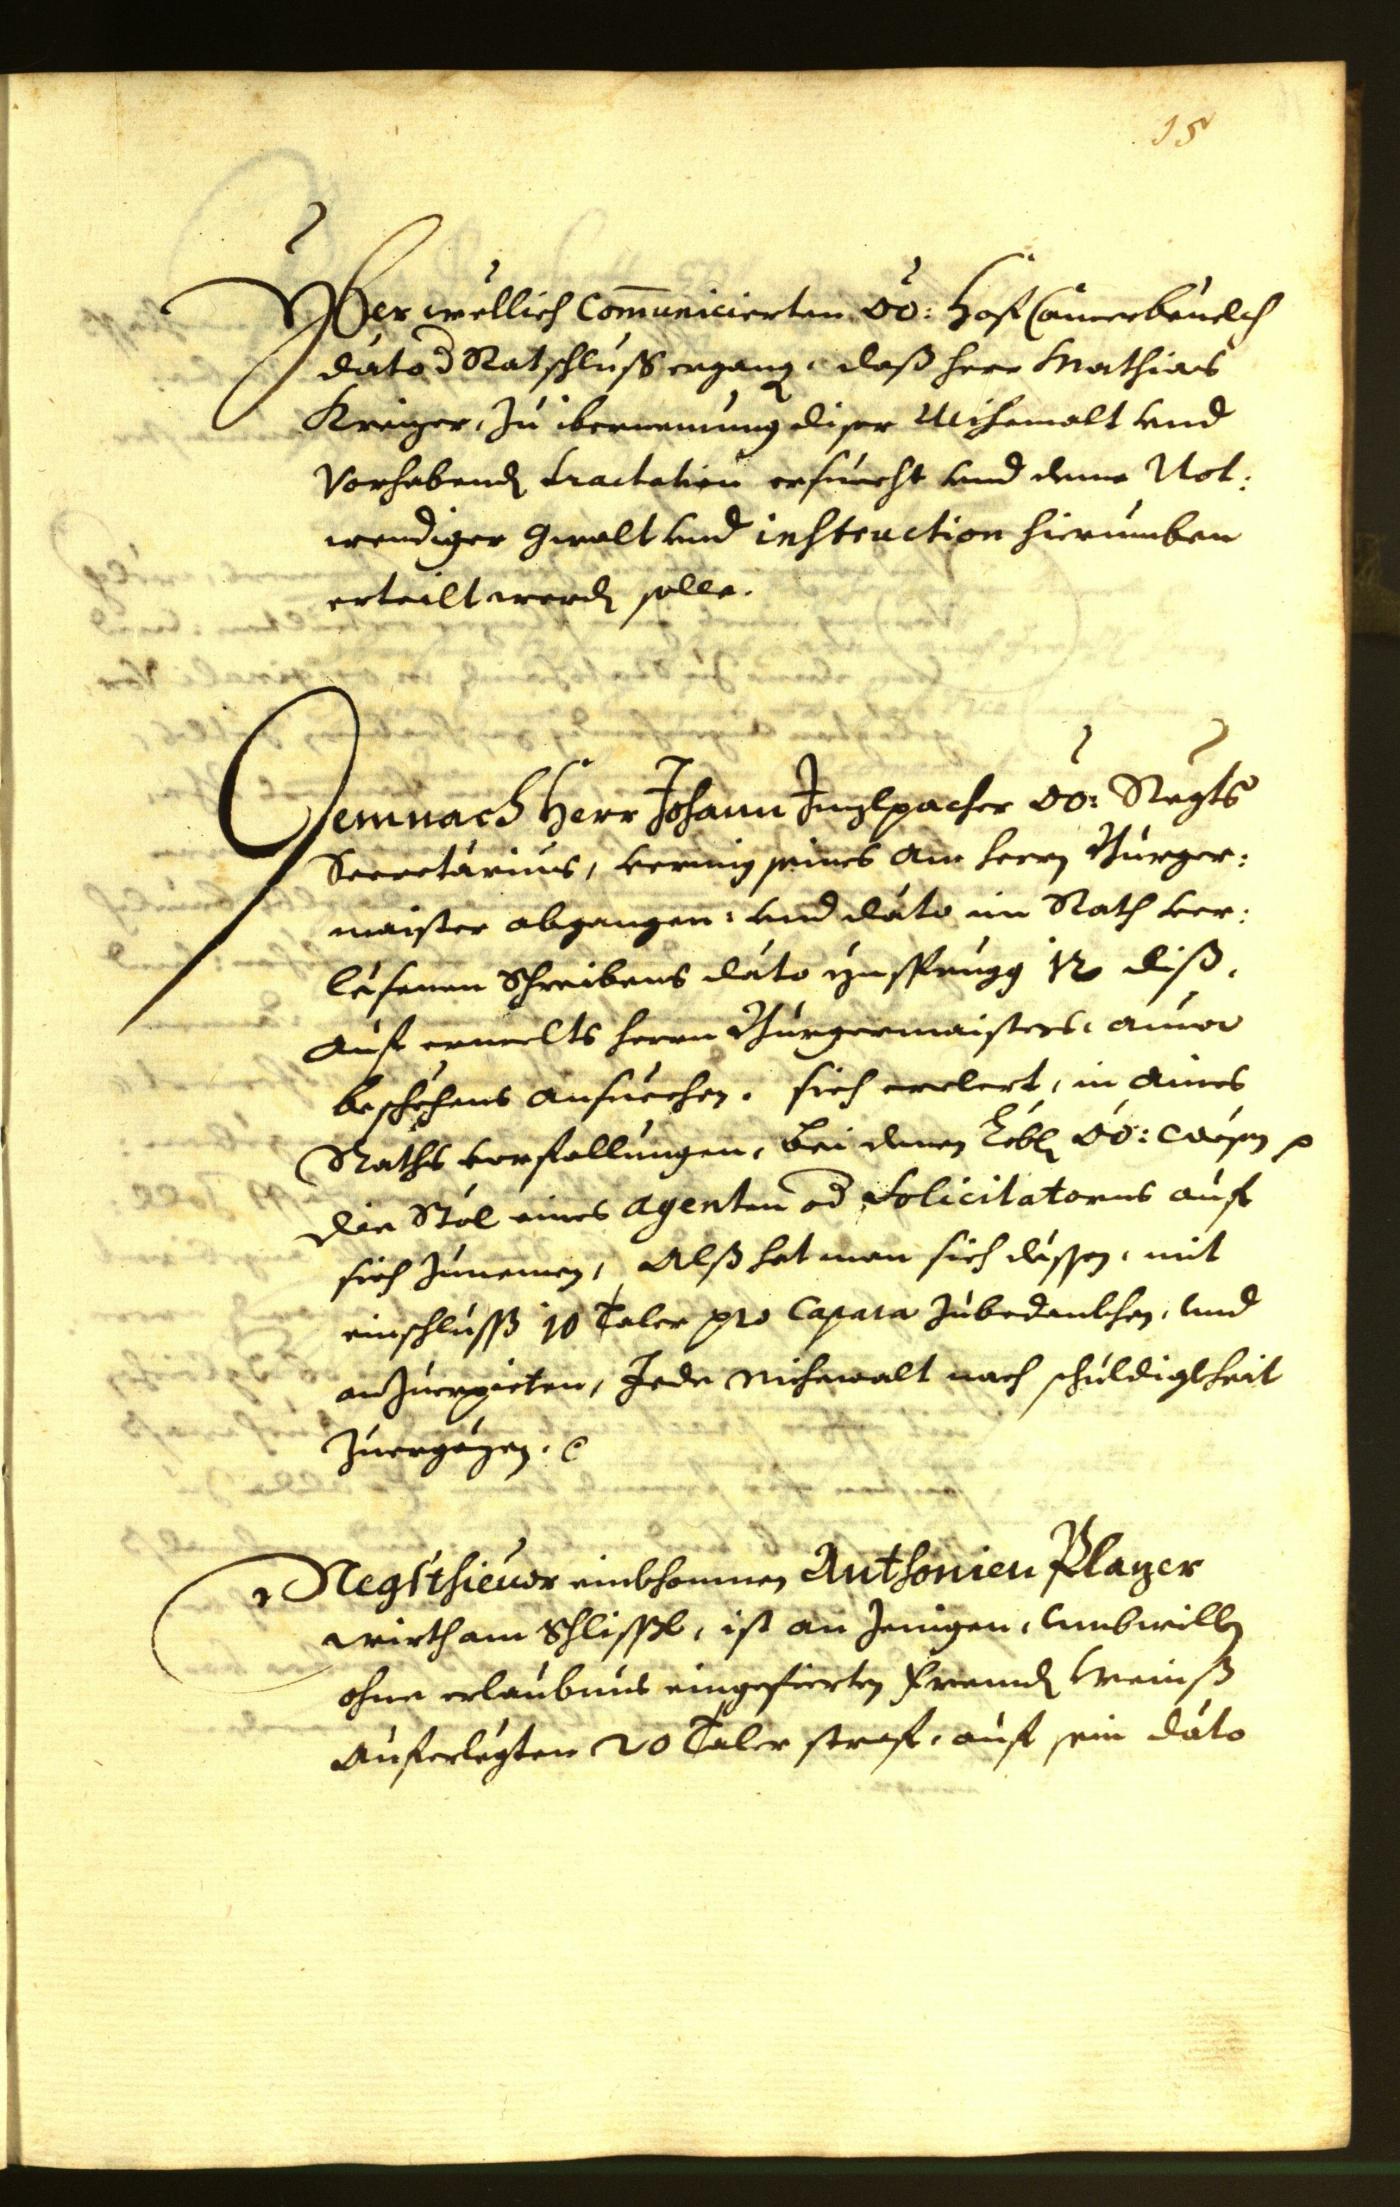 15
Yber wellich Com̅unicierten öö: Hof Camerbeuelch
dato d Ratschluss ergang, daß herr Mathias
Kreizer, zu ibernemung diser Miehewalt vnd
Vorhabend tractation ersuecht vnd deme Not:
wendiger Gwalt vnd instruction hierumben
erteilt werd solle.
Demnach Herr Johann Inglpacher öö: Regts
Secretarius, vermig seines am herrn Burger:
maister abgangen: vnd dato im Rath ver:
lesenen Schreibens dato Ynsprugg 12 diß,
auf ermelts herrn Burgermaisters, anuor
beschehens ansuechen, sich erclert, in aines
Raths vorfallungen, bei denen Löbl öö: wesen
die Stöl eines Agenten od Solicitatorns auf
sich zunemen, Alß hat man sich dessen, mit
einschluss 10 Taler pro Capara zubedankhen, vnd
anzuerpieten, Jede Miehewalt nach schuldigkheit
zuergezen.
Negsthieuor einkhommen Anthonien Plazer
wirth am Schlissl, ist an Jenigen, vmbwillen
ohne erlaubnus eingefierten frembd Weinß
auferlegten 20 Taler straf, auf sein dato